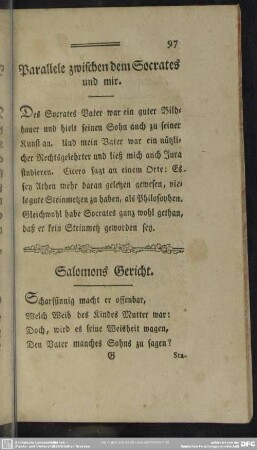 97
Parallele zwischen dem Socrates
und mir.
Des Socrates Vater war ein guter Bild-
hauer und hielt seinen Sohn auch zu seiner
Kunst an. Und mein Vater war ein nützli-
cher Rechtsgelehrter und ließ mich auch Jura
studieren. Cicero sagt an einem Orte: Es
sey Athen mehr daran gelegen gewesen, vie-
le gute Steinmetzen zu haben, als Philosophen.
Gleichwohl habe Socrates ganz wohl gethan,
daß er kein Steinmetz geworden sey.
Salomons Gericht.
Scharfsinnig macht er offenbar,
Welch Weib des Kindes Mutter war:
Doch, wird es seine Weisheit wagen,
Den Vater manches Sohns zu sagen?
G Sta-
DFG